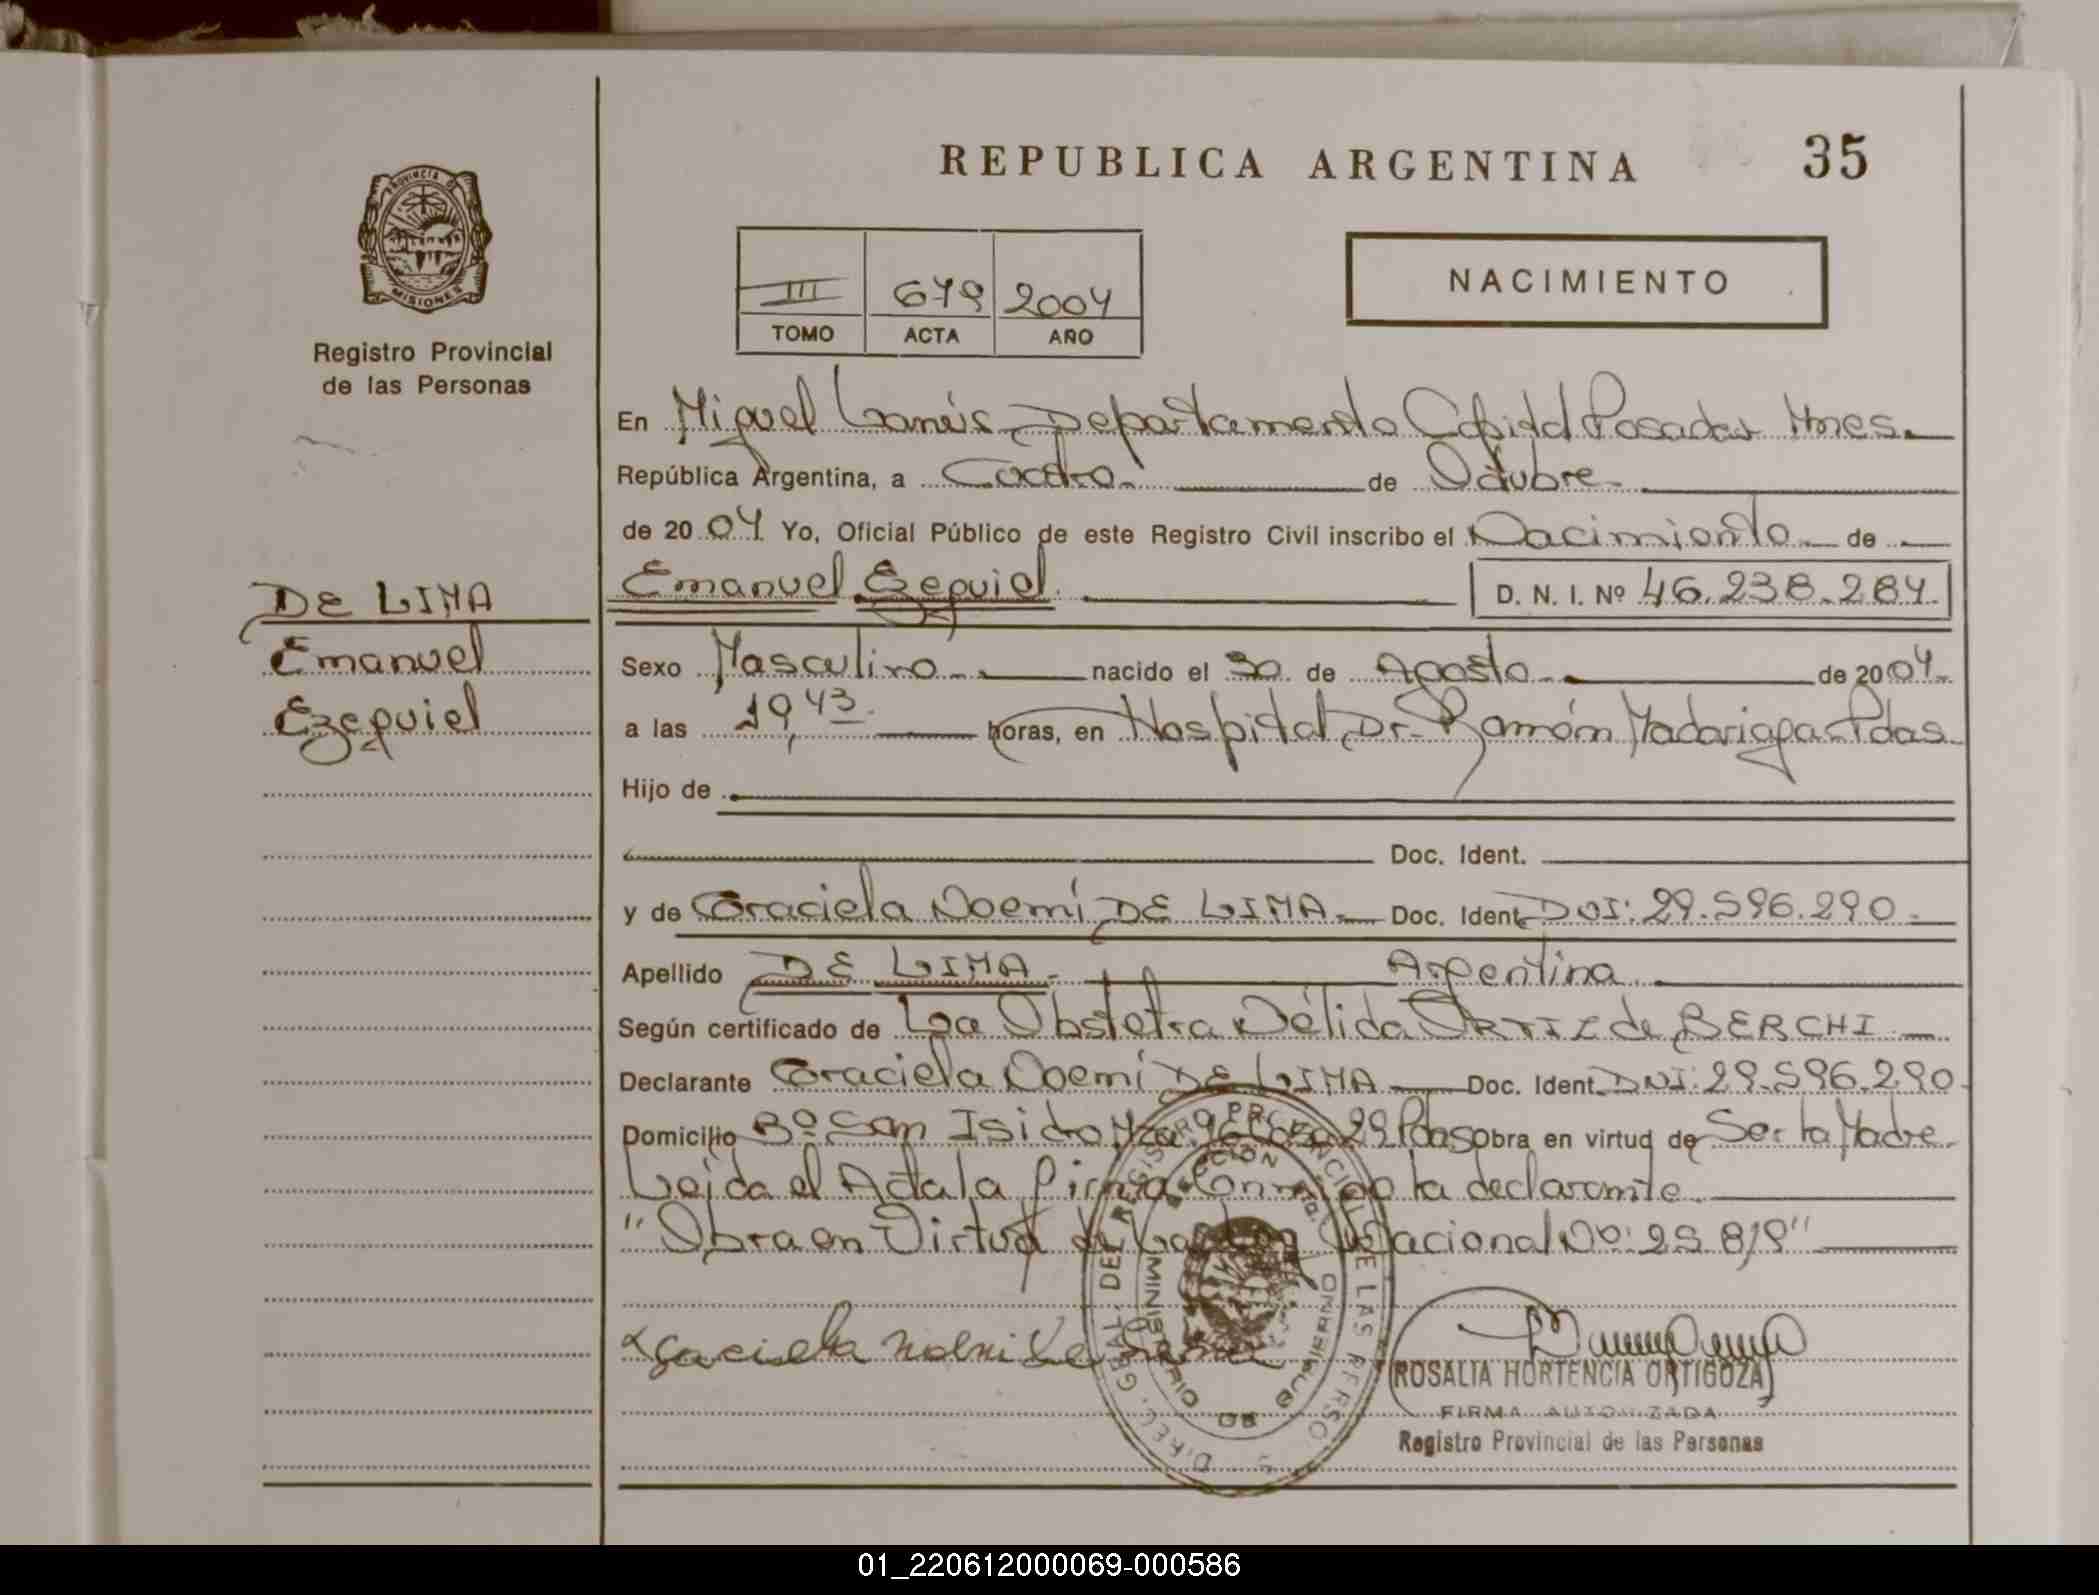 REPUBLICA ARGENTINA 35
PROVINCIA DE
MISIONES
Registro Provincial
de las Personas
NACIMIENTO
III 679 2004
TOMO ACTA AÑO
En Miguel Lanús Departamento Capital Posadas Mnes.
República Argentina, a Cuatro de Octubre
de 2004 Yo, Oficial Público de este Registro Civil inscribo el Nacimiento de
Emanuel Ezequiel D. N. I. Nº 46.238.284
DE LIMA
Emanuel
Ezequiel
Sexo Masculino nacido el 30 de Agosto de 2004
a las 19,43 horas, en Hospital Dr. Ramón Madariaga Pdas.
Hijo de
Doc. Ident.
y de Graciela Noemí DE LIMA Doc. Ident. DNI: 29.596.290
Apellido DE LIMA Argentina
Según certificado de La Obstetra Délida ORTIZ de BERCHI
Declarante Graciela Noemí DE LIMA Doc. Ident. DNI: 29.596.290
Domicilio Bº San Isidro Mza. Casa 29 Pdas obra en virtud de Ser la Madre
Leída el Acta la firma Conmigo la declarante
"Obra en Virtud de la Ley Nacional Nº: 25.819"
Graciela Noemi De Lima
DIREC. GRAL. DEL REGISTRO PROVINCIAL DE LAS PERSONAS
MINISTERIO DE GOBIERNO
ROSALIA HORTENCIA ORTIGOZA
FIRMA AUTORIZADA
Registro Provincial de las Personas
01_220612000069-000586